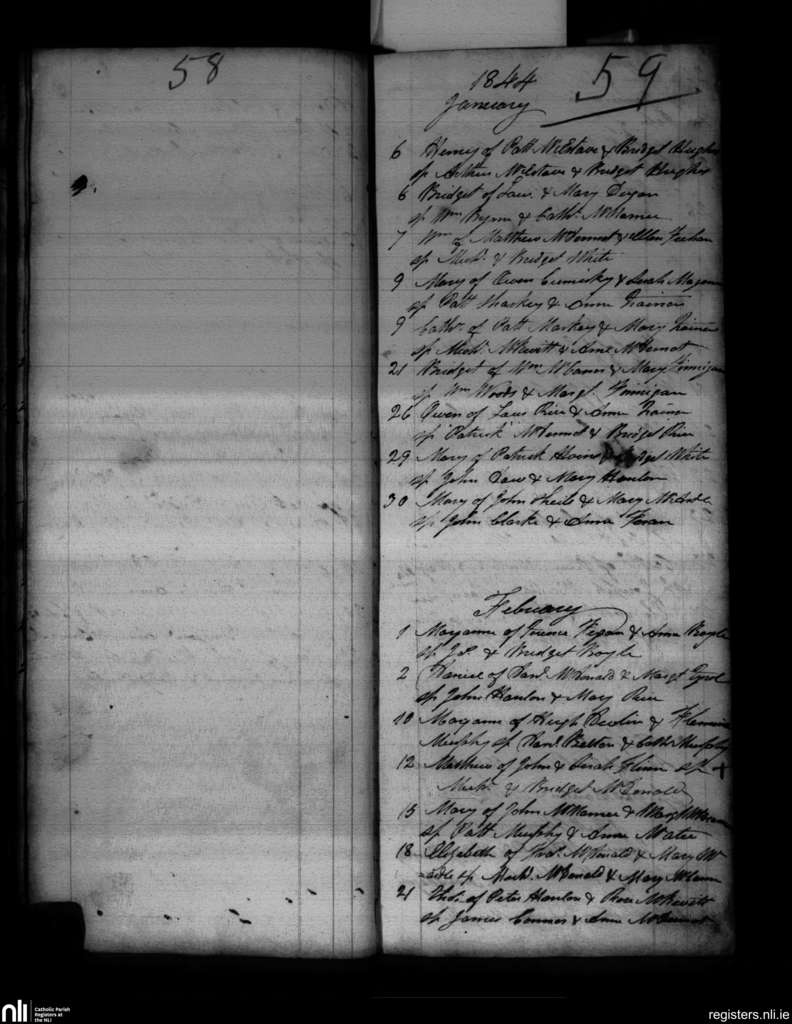 58
59
1844
January
6 Henry of Patt & Bridget
sp Arthur & Bridget
6 Bridget of Law. & Mary Dugan
sp Wm Byrne & Cath. McNamee
7 Wm of Matthew McDermot & Ellen Feehan
sp Mich. & Bridget White
9 Mary of Owen & Sarah
sp Patt Sharkey & Anne Trainor
9 Cath. of Patt Markey & Mary Trainor
sp Mich. McKevitt & Anne McDermot
21 Bridget of Wm McCann & Mary Finnigan
sp Wm Woods & Margt. Finnigan
26 Owen of Laus Rice & Ann Trainor
sp Patrick McDermot & Bridget Rice
29 Mary of Patrick White
sp John & Mary Hanlon
30 Mary of John Sheils & Mary McArdle
sp John Clarke & Anne
February
1 Maryanne of Terence & Anne Boyle
sp Jos. & Bridget Boyle
2 Daniel of Danl. McDonald & Margt.
sp John Hanlon & Mary Rice
10 Maryann of Hugh Devlin &
Murphy sp Danl. & Cath. Murphy
12 Matthew of John & Sarah Flinn sp +
Mich. & Bridget McDonald
15 Mary of John McNamee &
sp Patt Murphy & Anne
18 Elizabeth of Thos. McDonald & Mary Mc
=ardle sp Mich. McDonald & Mary McCann
21 Thos. of Peter Hanlon & Rose McKevitt
sp James Connor & Ann McDermot
nli
Catholic Parish
Registers at
the NLI
registers.nli.ie